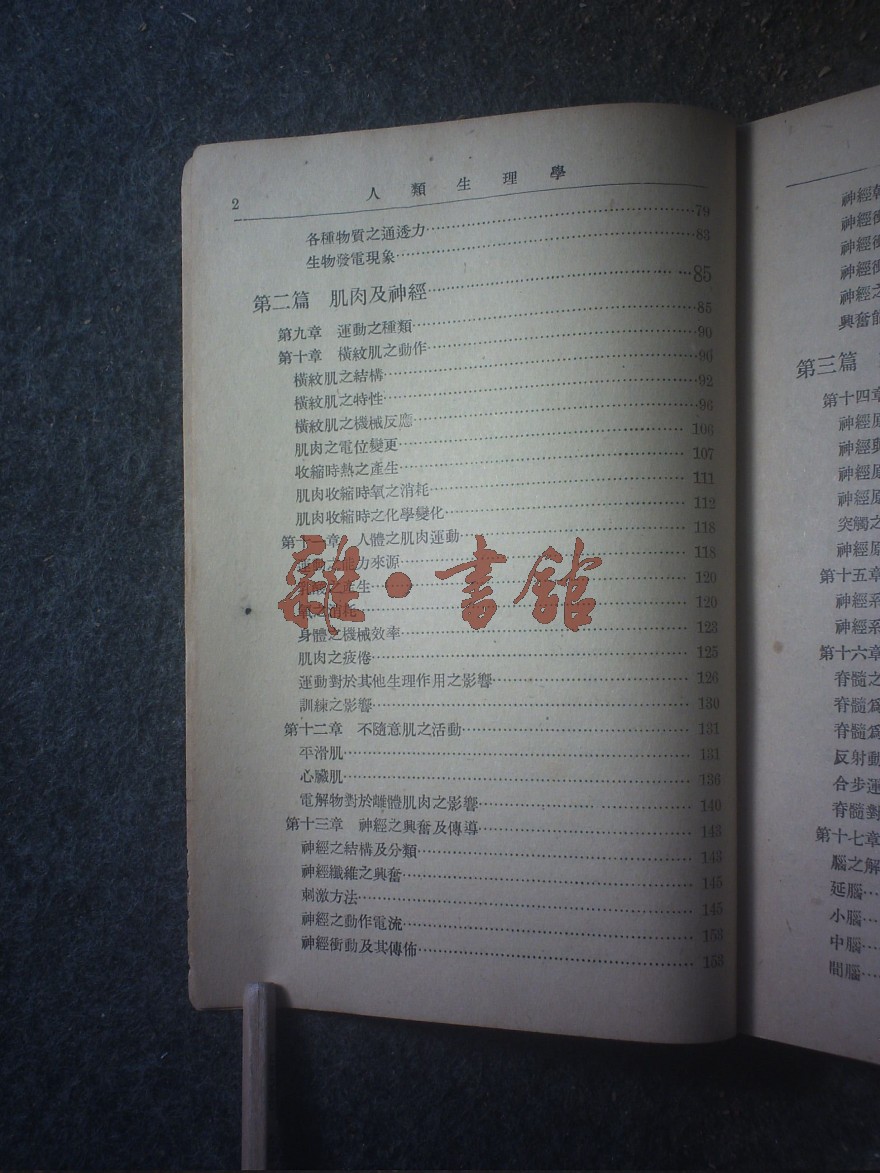 2 人類生理學
各種物質之通透力………79
生物發電現象………83
第二篇 肌肉及神經………85
第九章 運動之種類………85
第十章 橫紋肌之動作………90
橫紋肌之結構………90
橫紋肌之特性………92
橫紋肌之機械反應………96
肌肉之電位變更………106
收縮時熱之產生………107
肌肉收縮時氧之消耗………111
肌肉收縮時之化學變化………112
第十一章 人體之肌肉運動………118
運動之能力來源………118
之產生………120
氧之消耗………120
身體之機械效率………123
肌肉之疲倦………125
運動對於其他生理作用之影響………126
訓練之影響………130
第十二章 不隨意肌之活動………131
平滑肌………131
心臟肌………136
電解物對於離體肌肉之影響………140
第十三章 神經之興奮及傳導………143
神經之結構及分類………143
神經纖維之興奮………145
刺激方法………145
神經之動作電流………153
神經衝動及其傳佈………153
雜·書館
神經
神經衝
神經衝
神經衝
神經之
興奮
第三篇
第十四章
神經原
神經與
神經原
神經原
突觸之
神經原
第十五章
神經系
神經系
第十六章
脊髓之
脊髓爲
脊髓爲
反射動
合步運
脊髓對
第十七章
腦之解
延腦…
小腦…
中腦…
間腦…